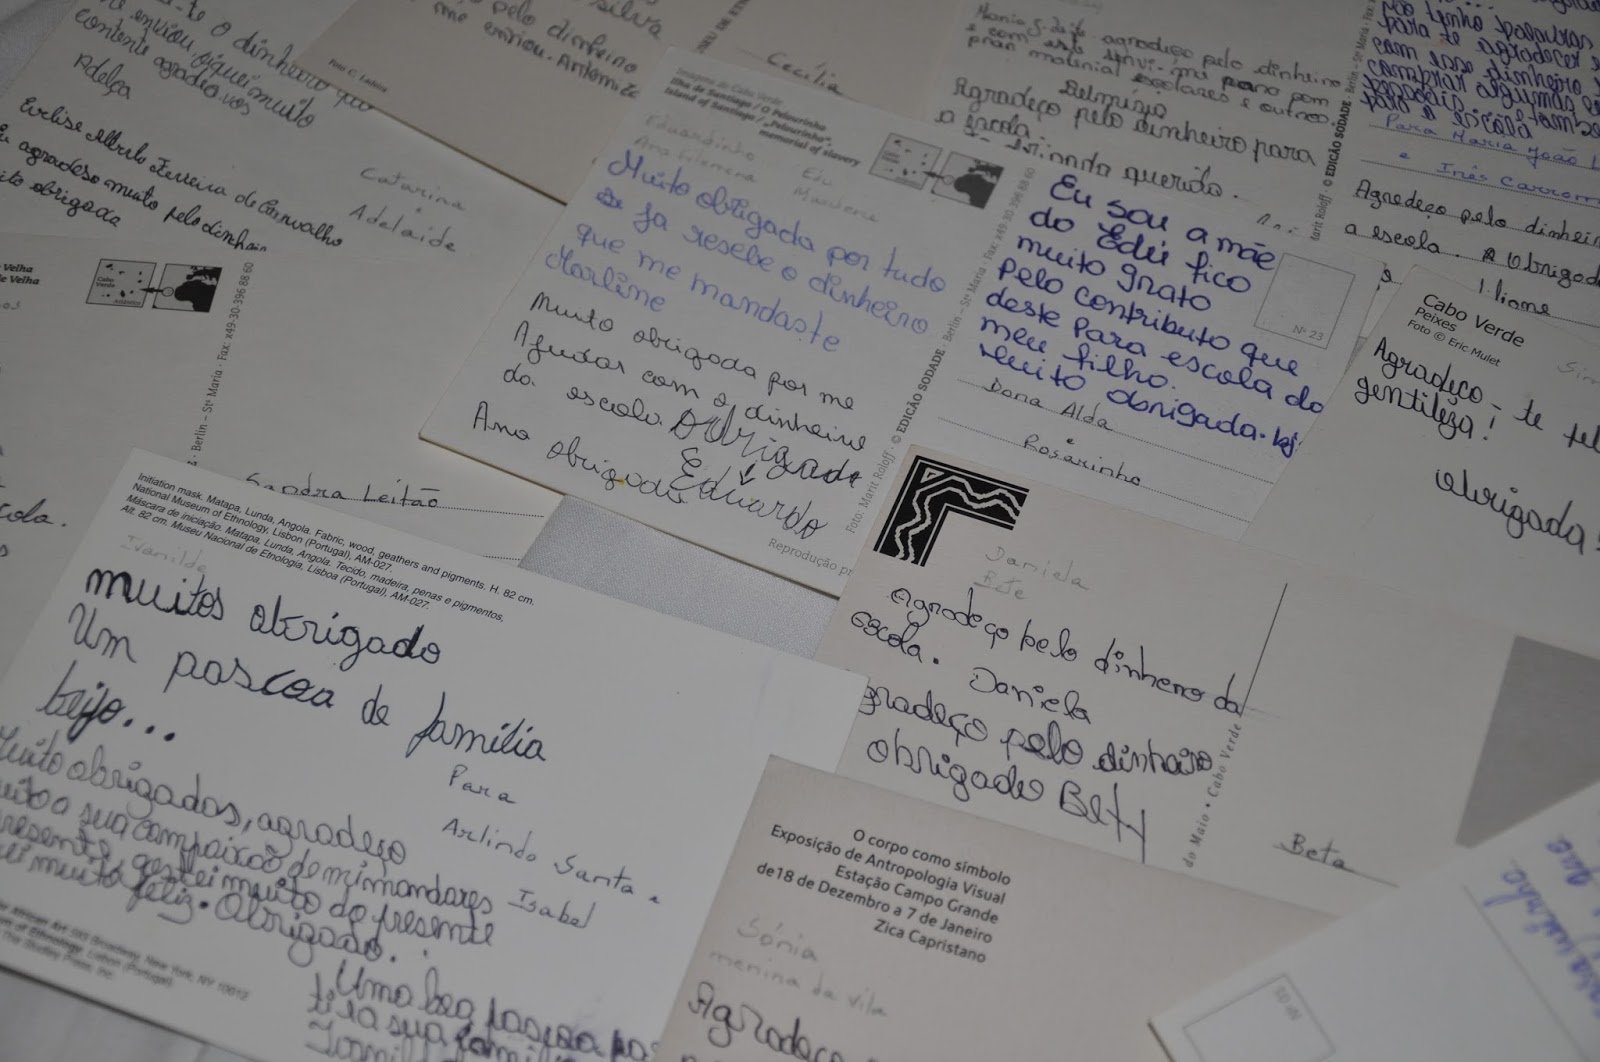 -te o dinheiro que
enviou, fiquei muito
contente agradeço vos
Adelça
Evelise Alberto Ferreira de Carvalho
agradeso muito pelo dinheiro
obrigada
Catarina
Adelaide
Silva
pelo dinheiro
me enviou. Artemiza
Foto C. Ladeira
Cecília
Imagens de Cabo Verde
Ilha de Santiago / O Pelourinho
Island of Santiago / „Pelourinho“,
memorial of slavery
Eduardinho
Ana Filomena
Edu
Marlene
Muito obrigada por tudo
Ja resebe o dinheiro
que me mandaste
Marline
Muito obrigada por me
Ajudar com o dinheiro
da escola. Obrigado
Eduardo
Ana
obrigada
Foto: Marit Roloff · © EDIÇÃO SODADE · Berlin – Stª Maria · Fax: x49-30-396 88 60
Eu sou a mãe
do Edú fico
muito grato
pelo contributo que
deste para escola do
meu filho.
Muito obrigada. bj.
Nº 23
Dona Alda
e
Rosarinho
agradeço pelo dinheiro
material escolares e outros
Belmiza
Agradeço pelo dinheiro para
a escola.
querida.
não tenho palavras
para te agradecer
com esse dinheiro
comprar algumas
pessoais
para a escola
Para Maria João
e Inês
Marit Roloff · © EDIÇÃO SODADE · Berlin – Stª Maria · Fax:
Agradeço pelo dinheiro
a escola. Obrigada
Cabo Verde
Peixes
Foto © Eric Mulet
Agradeço-te pel
gentileza!
Obrigada!
Velha
Velha
Cabo
Verde
· Berlin – Stª Maria · Fax: x49-30-396 88 60
Sandra Leitão
Initiation mask. Matapa, Lunda, Angola. Fabric, wood, geathers and pigments. H. 82 cm.
National Museum of Ethnology, Lisbon (Portugal), AM-027.
Máscara de iniciação. Matapa, Lunda, Angola. Tecido, madeira, penas e pigmentos.
Alt. 82 cm. Museu Nacional de Etnologia, Lisboa (Portugal), AM-027.
Ivanilda
muitos obrigado
Um pascoa de família
beijo...
Para
Arlindo Santa
Isabel
Muito obrigados, agradeço
muito a sua compaixão de mi mandares
presente, gostei muito do presente
muito feliz. Obrigado.
African Art 593 Broadway, New York, NY 10012
of Ethnology, Lisbon (Portugal)
Uma boa pascoa pa
ti e a sua família
Daniela
Bete
Agradeço pelo dinheiro da
escola. Daniela
gradeço pelo dinheiro
obrigado Bety
do Maio • Cabo Verde
Beta
O corpo como símbolo
Exposição de Antropologia Visual
Estação Campo Grande
de 18 de Dezembro a 7 de Janeiro
Zica Capristano
Sónia
menina da vila
Agradeço